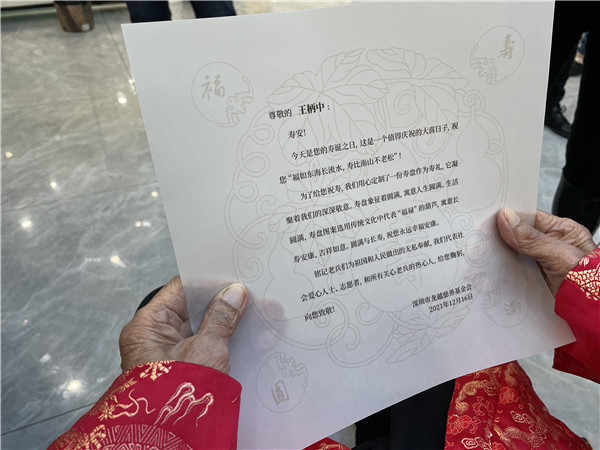 福
寿
尊敬的 王柄中：
寿安！
今天是您的寿诞之日，这是一个值得庆祝的大喜日子，祝
您“福如东海长流水，寿比南山不老松”！
为了给您祝寿，我们用心定制了一份寿盘作为寿礼。它凝
聚着我们的深深敬意。寿盘象征着圆满，寓意人生圆满，生活
圆满，寿盘图案选用传统文化中代表“福禄”的葫芦，寓意长
寿安康，吉祥如意。圆满与长寿，祝您永远幸福安康。
铭记老兵们为祖国和人民做出的无私奉献，我们代表社
会爱心人士、志愿者，和所有关心老兵的热心人，给您鞠躬，
向您致敬！
深圳市龙越慈善基金会
2021年12月16日
圆